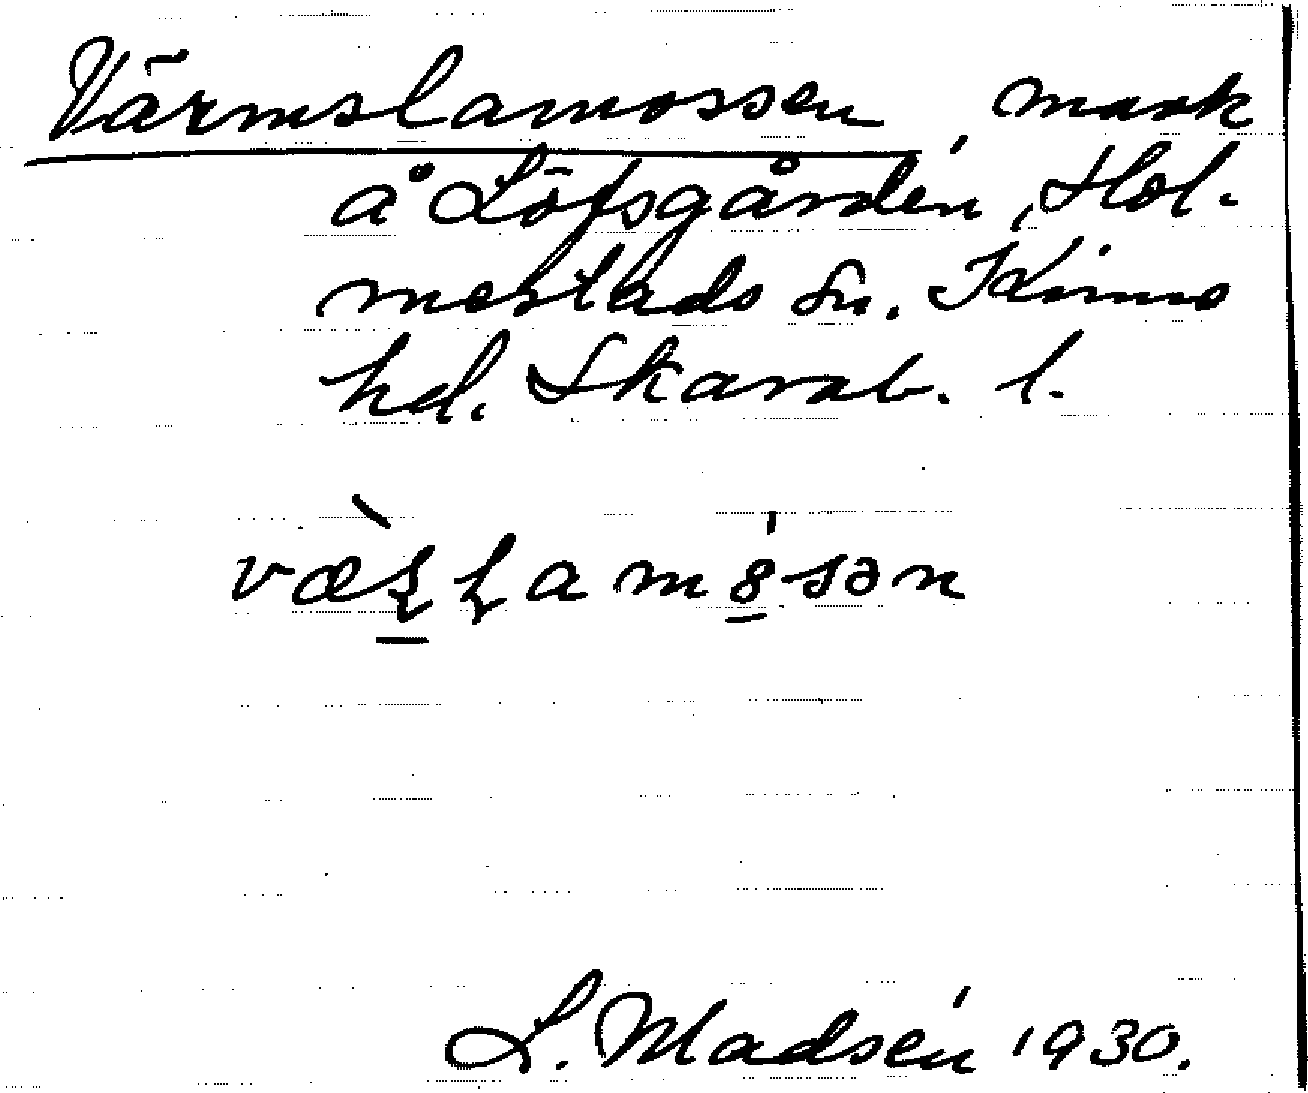 Värmslamossen, mark
å Löfsgården, Hol-
mestads sn. Kinne
hd. Skarab. l.
L. Madsén 1930.